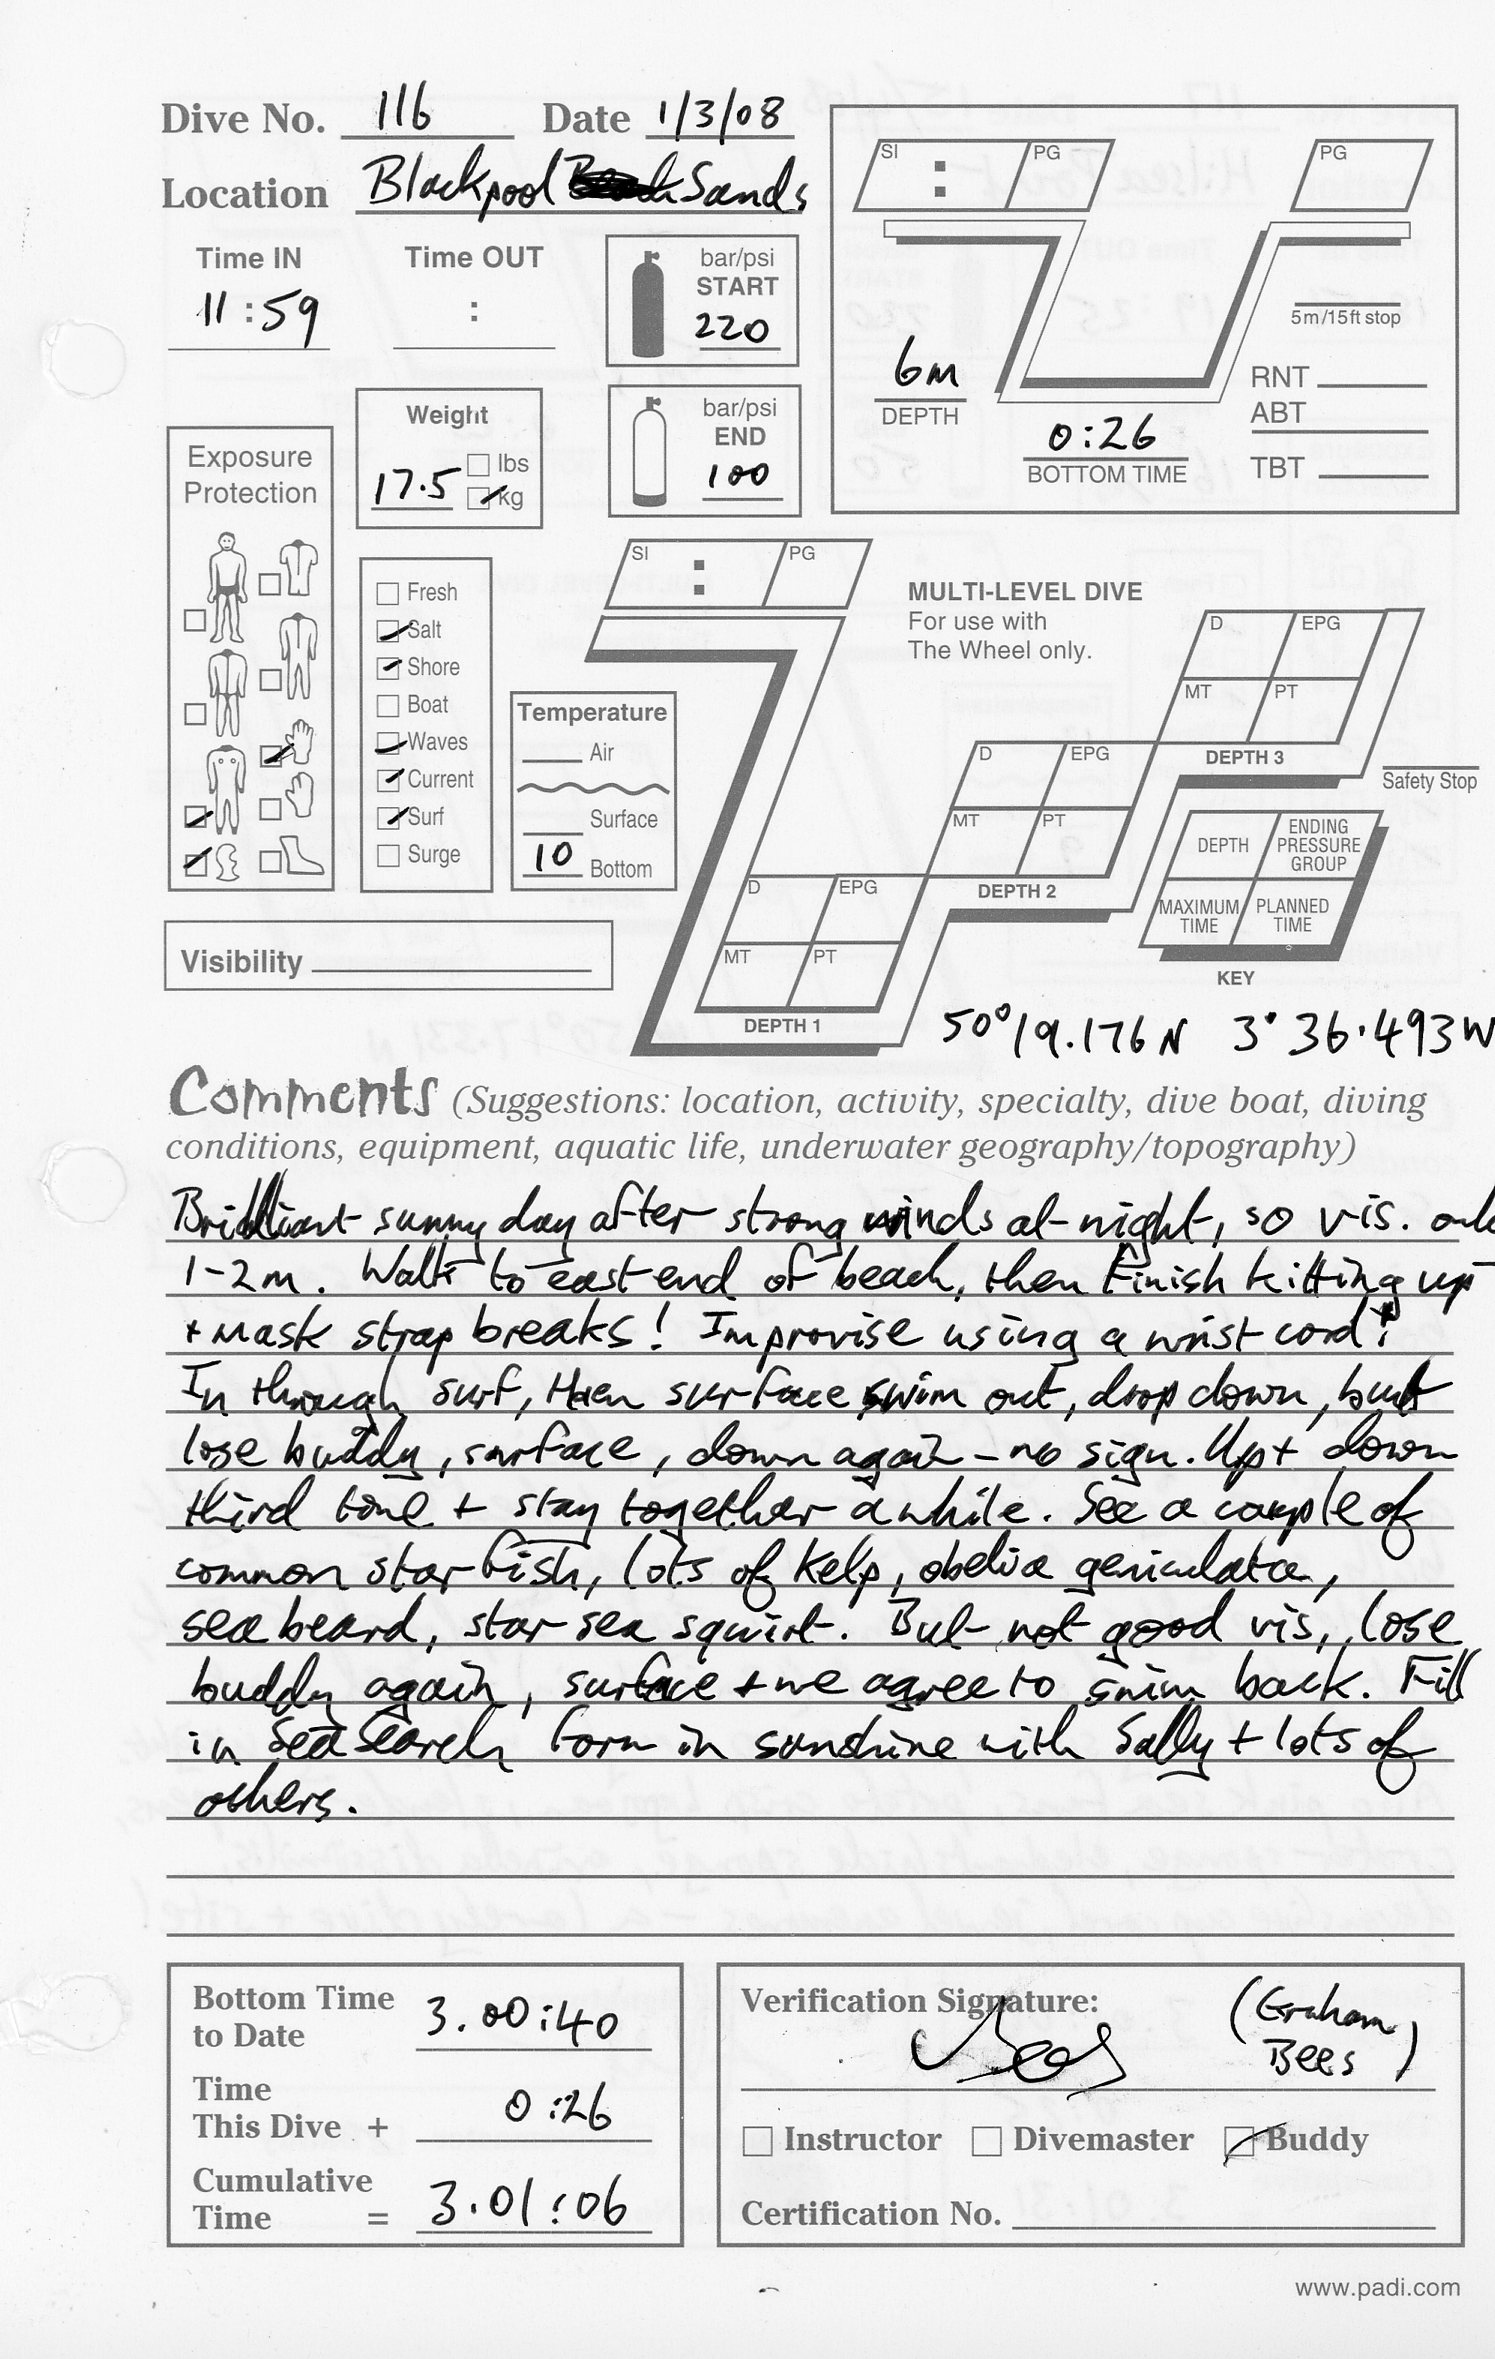 Dive No. 116 Date 1/3/08
Location Blackpool Sands
Time IN 11:59
Time OUT :
bar/psi START 220
bar/psi END 100
Weight 17.5 lbs kg
Exposure Protection
Fresh
Salt
Shore
Boat
Waves
Current
Surf
Surge
Temperature
Air
Surface
10 Bottom
Visibility
SI : PG PG
5m/15ft stop
6m DEPTH
0:26 BOTTOM TIME
RNT
ABT
TBT
SI : PG
MULTI-LEVEL DIVE
For use with
The Wheel only.
D EPG
MT PT
DEPTH 3
Safety Stop
D EPG
MT PT
DEPTH 2
D EPG
MT PT
DEPTH 1
DEPTH ENDING PRESSURE GROUP
MAXIMUM TIME PLANNED TIME
KEY
50° 19.176 N 3° 36.493 W
Comments (Suggestions: location, activity, specialty, dive boat, diving
conditions, equipment, aquatic life, underwater geography/topography)
Brilliant sunny day after strong winds at night, so vis. only
1-2m. Walk to east end of beach, then finish kitting up
+ mask strap breaks! Improvise using a wrist cord!
In through surf, then surface swim out, drop down, but
lose buddy, surface, down again - no sign. Up + down
third time + stay together awhile. See a couple of
common starfish, lots of kelp, obelia geniculata,
sea beard, star sea squirt. But not good vis, lose
buddy again, surface + we agree to swim back. Fill
in SeaSearch form in sunshine with Sally + lots of
others.
Bottom Time to Date 3.00:40
Time This Dive + 0:26
Cumulative Time = 3.01:06
Verification Signature: (Graham Bees)
Instructor Divemaster Buddy
Certification No.
www.padi.com